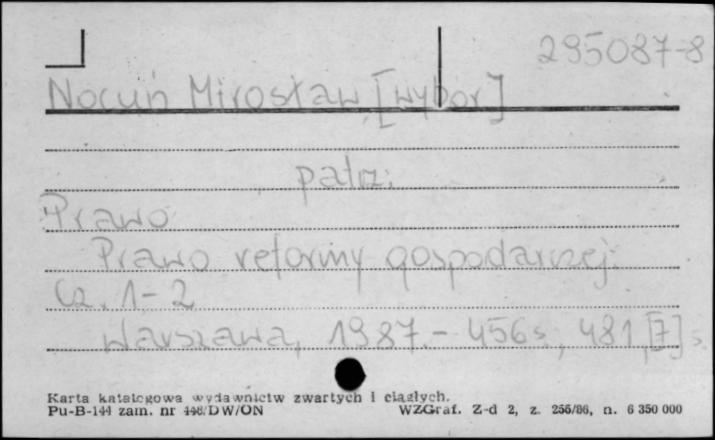 295087-8
Nocuń Mirosław, [wybor]
patrz:
Prawo
Prawo reformy gospodarczej.
Cz. 1-2
Warszawa, 1987.- 456 s., 481, [7] s.
Karta katalogowa wydawnictw zwartych i ciągłych.
Pu-B-144 zam. nr 448/DW/ON WZGraf. Z-d 2, z. 255/86, n. 6 350 000